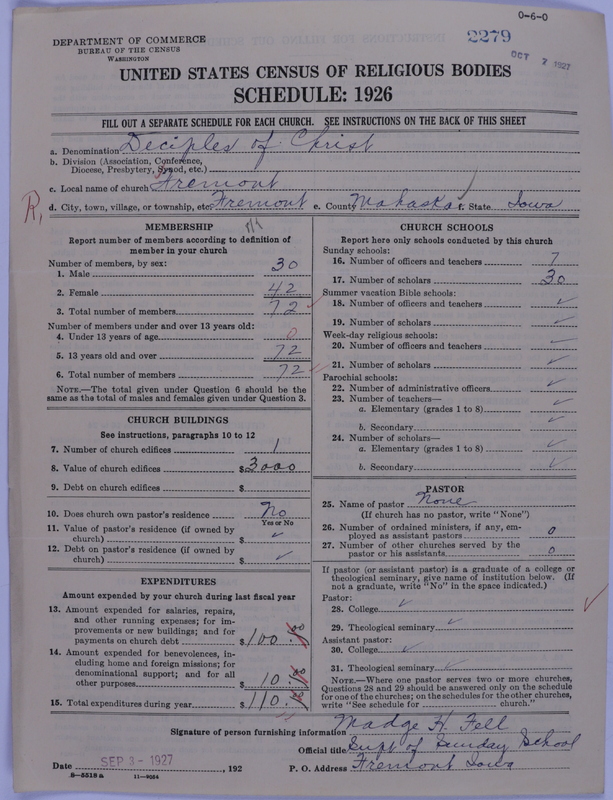 0-6-0
2279
OCT 7 1927
DEPARTMENT OF COMMERCE
BUREAU OF THE CENSUS
WASHINGTON
UNITED STATES CENSUS OF RELIGIOUS BODIES
SCHEDULE: 1926
FILL OUT A SEPARATE SCHEDULE FOR EACH CHURCH. SEE INSTRUCTIONS ON THE BACK OF THIS SHEET
a. Denomination Deciples of Christ
b. Division (Association, Conference,
Diocese, Presbytery, Synod, etc.)
c. Local name of church Fremont
d. City, town, village, or township, etc. Fremont e. County Mahaska f. State Iowa
R,
MEMBERSHIP
Report number of members according to definition of
member in your church
Number of members, by sex:
1. Male 30
2. Female 42
3. Total number of members 72
Number of members under and over 13 years old:
4. Under 13 years of age 0
5. 13 years old and over 72
6. Total number of members 72
NOTE.—The total given under Question 6 should be the
same as the total of males and females given under Question 3.
CHURCH BUILDINGS
See instructions, paragraphs 10 to 12
7. Number of church edifices 1
8. Value of church edifices $3000
9. Debt on church edifices $
10. Does church own pastor's residence No
Yes or No
11. Value of pastor's residence (if owned by
church) $ ✓
12. Debt on pastor's residence (if owned by
church) $ ✓
EXPENDITURES
Amount expended by your church during last fiscal year
13. Amount expended for salaries, repairs,
and other running expenses; for im-
provements or new buildings; and for
payments on church debt $100.00
14. Amount expended for benevolences, in-
cluding home and foreign missions; for
denominational support; and for all
other purposes $10.00
15. Total expenditures during year $110.00
CHURCH SCHOOLS
Report here only schools conducted by this church
Sunday schools:
16. Number of officers and teachers 7
17. Number of scholars 30
Summer vacation Bible schools:
18. Number of officers and teachers ✓
19. Number of scholars ✓
Week-day religious schools:
20. Number of officers and teachers ✓
21. Number of scholars ✓
Parochial schools:
22. Number of administrative officers ✓
23. Number of teachers—
a. Elementary (grades 1 to 8) ✓
b. Secondary ✓
24. Number of scholars—
a. Elementary (grades 1 to 8) ✓
b. Secondary ✓
PASTOR
25. Name of pastor None
(If church has no pastor, write "None")
26. Number of ordained ministers, if any, em-
ployed as assistant pastors 0
27. Number of other churches served by the
pastor or his assistants 0
If pastor (or assistant pastor) is a graduate of a college or
theological seminary, give name of institution below. (If
not a graduate, write "No" in the space indicated.)
Pastor:
28. College ✓
29. Theological seminary ✓
Assistant pastor:
30. College ✓
31. Theological seminary ✓
NOTE.—Where one pastor serves two or more churches,
Questions 28 and 29 should be answered only on the schedule
for one of the churches; on the schedules for the other churches,
write "See schedule for church."
Signature of person furnishing information Madge H. Fell
Official title Supt of Sunday School
Date SEP 3 - 1927, 192 P. O. Address Fremont Iowa
8-5518 a 11-9024